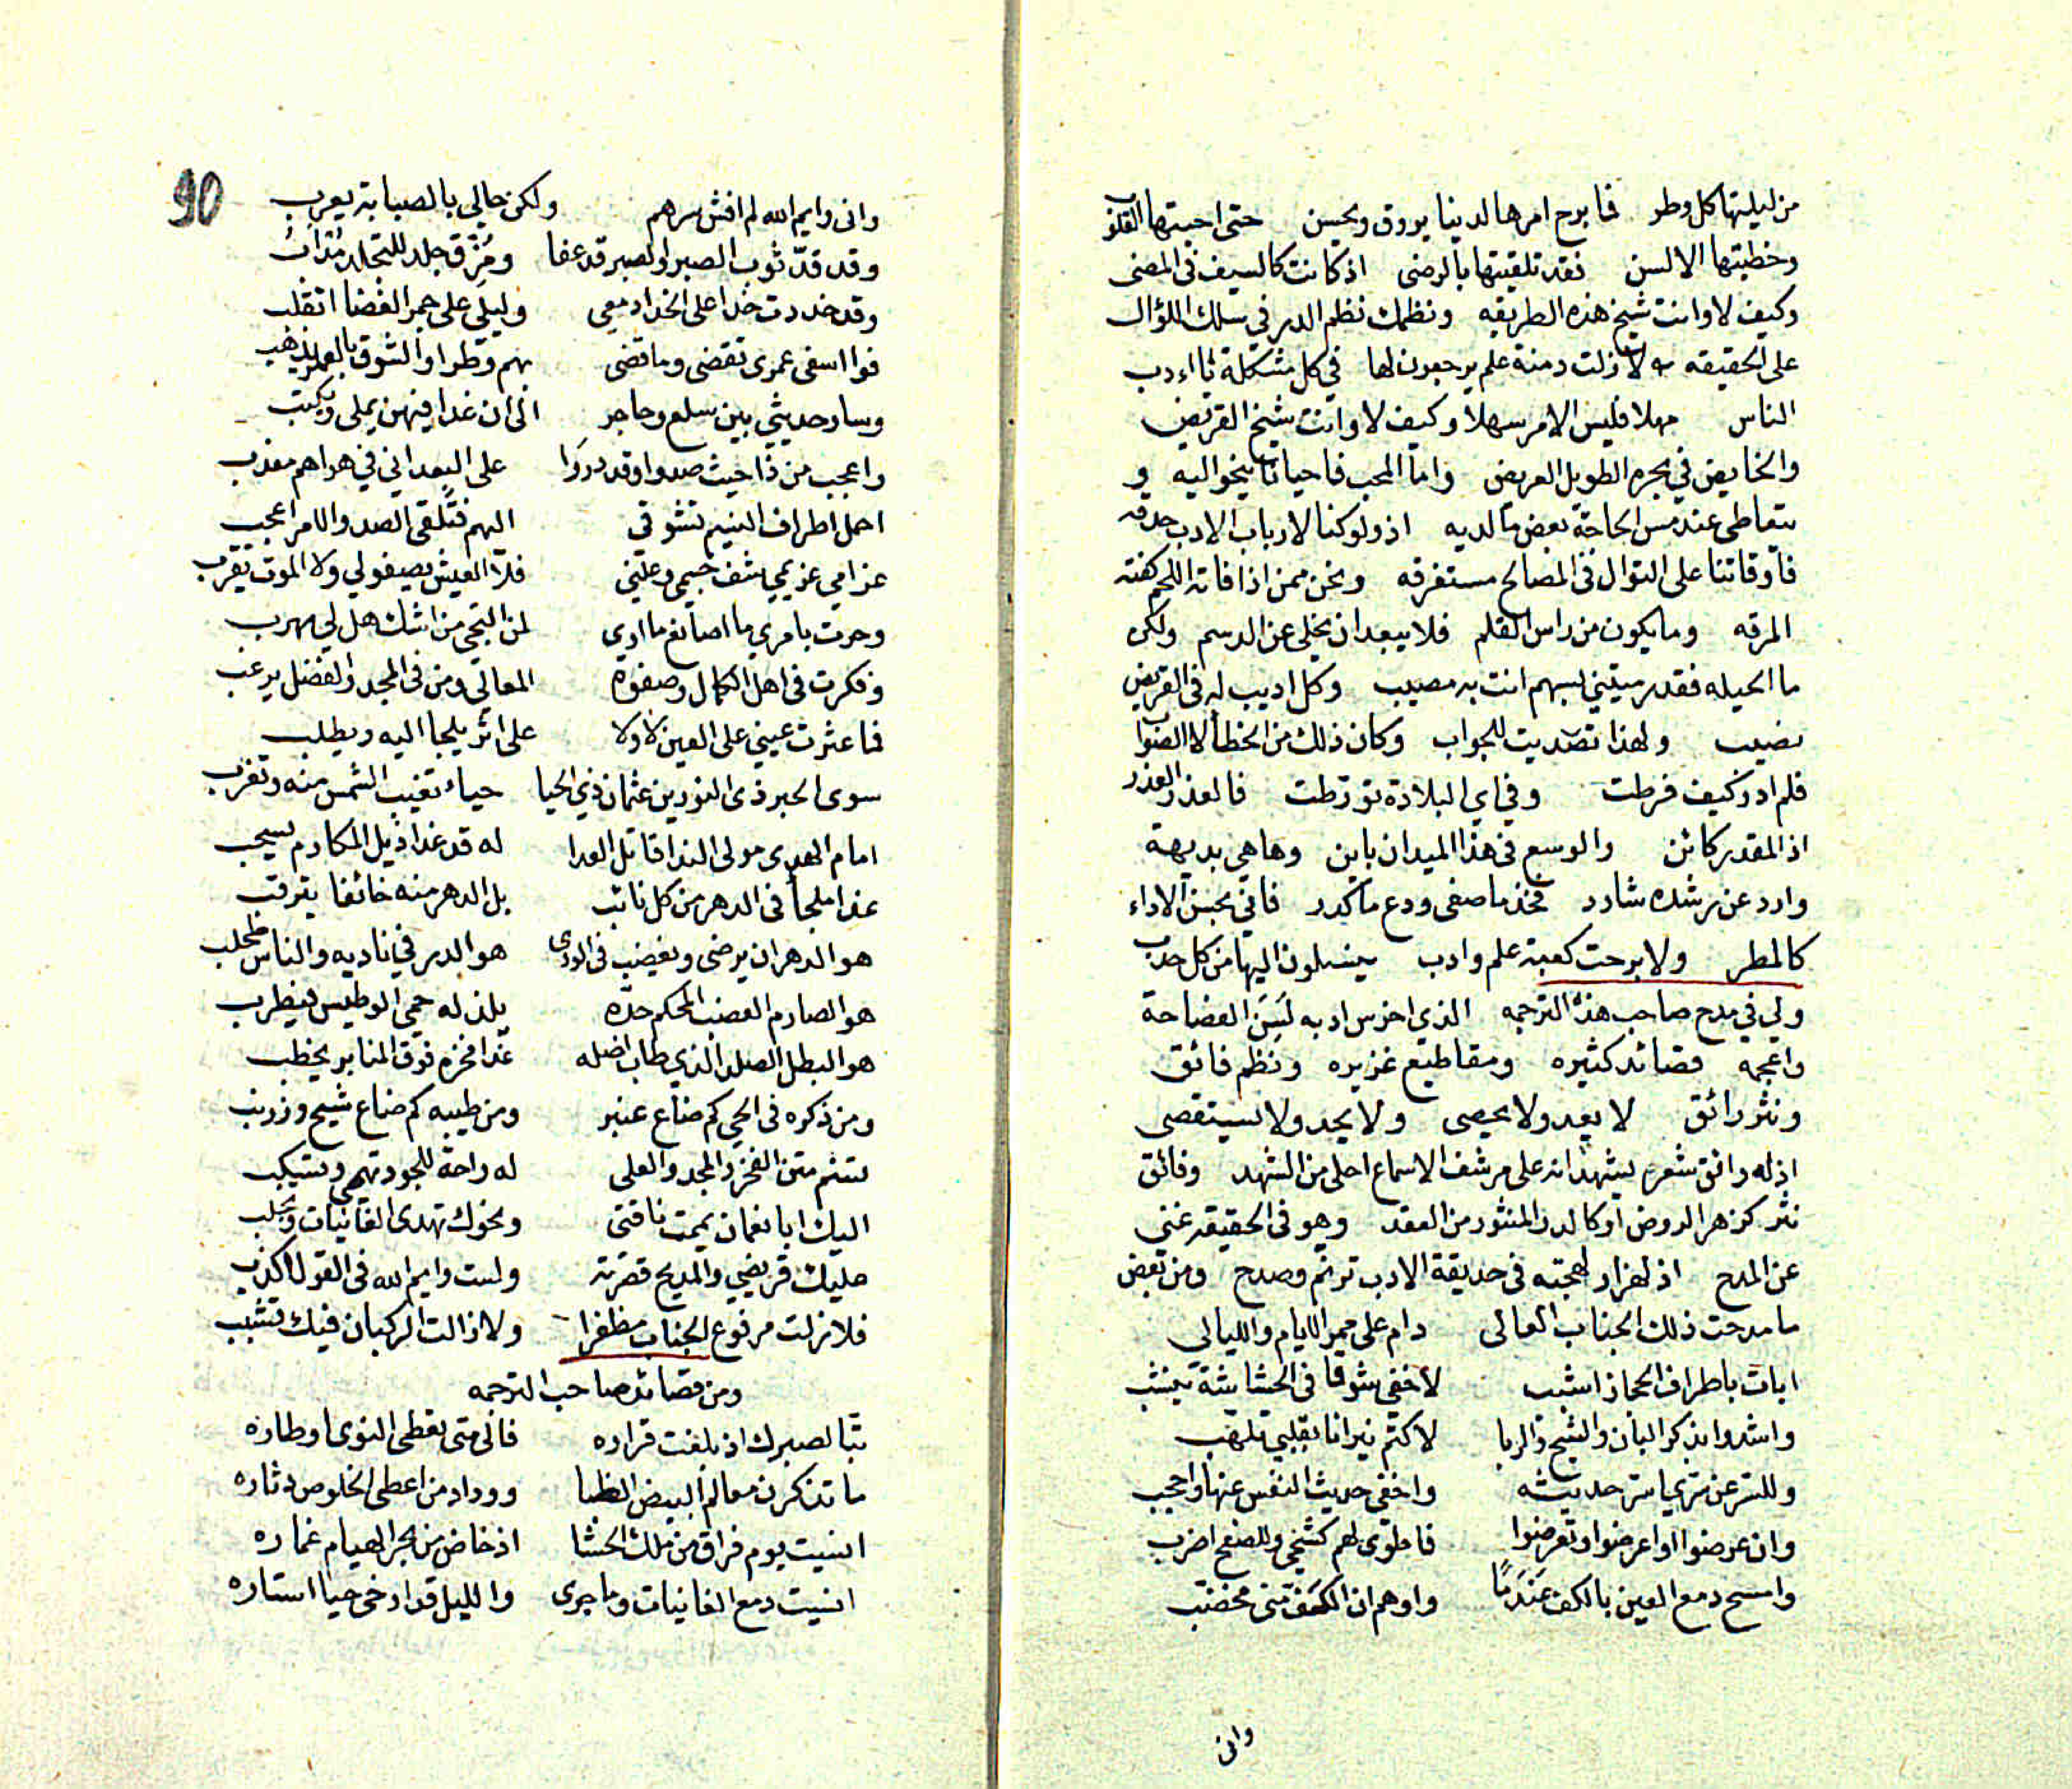 من ليلتها كل وطر فما برح امرها لدينا يروق ويحسن حتى احبتها القلوب
وخطبتها الالسن فقد تلقيتها بالرضى اذ كانت كالسيف في المضى
وكيف لا وانت شيخ هذه الطريقه ونظمك نظم الدر في سلك اللؤال
على الحقيقه لا زلت دمنة علم يرجعون لها في كل مشكلة يا ادب
الناس مهلا فليس الامر سهلا وكيف لا وانت شيخ القريض
والخايض في بحره الطويل العريض واما المحب فاحيانا ينحو اليه و
يتعاطى عند مس الحاجة بعض ما لديه اذ ولو كنا لارباب الادب حدقه
فاوقاتنا على التوال في المصالح مستغرقه ونحن ممن اذا فاته اللحم كفته
المرقه وما يكون من راس القلم فلا يبعد ان يخلى عن الدسم ولكن
ما الحيله فقد رميتني بسهم انت به مصيب وكل اديب له في القريض
نصيب ولهذا تصديت للجواب وكان ذلك من الخطأ لا الصواب
فلم ادر كيف فرطت وفي اي البلادة تورطت فالعذر العذر
اذ المقدر كائن والوسع في هذا الميدان باين وها هي بديهة
وارد عن رشده شارد فخذ ما صفى ودع ما كدر فاني بحسن الاداء
كالمطر ولا برحت كعبة علم وادب ينسلون اليها من كل حدب
ولي في مدح صاحب هذه الترجمه الذي اخرس ادبه لسن الفصاحة
واعجمه قصائد كثيره ومقاطيع غزيره ونظم فائق
ونثر رائق لا يعد ولا يحصى ولا يحد ولا يستقصى
اذ له رائق شعر يشهد انه على مرشف الاسماع احلى من الشهد وفائق
نثر كزهر الروض او كالدر المنثور من العقد وهو في الحقيقه غني
عن المدح اذ لهزار لهجته في حديقة الادب ترنم وصدح ومن بعض
ما مدحت ذلك الجناب العالى دام على ممر الايام والليالى
ابات باطراف الحجاز اشبب لاخفي شوقا في الحشاشة ينشب
واشدوا بذكر البان والشيح والربا لاكتم نيرانا بقلبي تلهب
وللستر عن ريا ستر حديثه واخفى حديث النفس عنها واحجب
وان عرضوا او اعرضوا وتعرضوا فاطوى لهم كشحي وللصفح اضرب
وامسح دمع العين بالكف عندما واوهم ان الكف مني مخضب
وانى
90
وانى وايم الله لم افش سرهم ولكن حالي بالصبابة يعرب
وقد قد ثوب الصبر والصبر قد عفا ومزق جلد للتجلد
وقد خددت خدا على الخد ادمعي وليلي على جمر الغضا اتقلب
فوا اسفى عمرى تقضى وما قضى بهم وطرا والشوق بالعمر يذهب
وسار حديثي بين سلع وحاجر الى ان غدا فيهن يملى ويكتب
واعجب من ذا حيث صدوا وقد دروا على البعد اني في هواهم معذب
احمل اطراف النسيم تشوقي اليهم فتلقى الصد والامر اعجب
غرامي غريمي شف جسمي وعلتي فلا العيش يصفو لي ولا الموت يقرب
وحرت بامري ما اصانع ما ارى لمن التجى من اشك هل لي مهرب
وفكرت في اهل الكمال وصفوة المعالي ومن في المجد والفضل يرغب
فما عثرت عيني على العين لا ولا على اثر يلجا اليه ويطلب
سوى الحبر ذى النورين عثمان ذي الحيا حياء تغيب الشمس منه وتغرب
امام الهدى مولى الندا قاتل العدا له قد غدا ذيل المكارم يسحب
غدا ملجأ في الدهر من كل نائب بل الدهر منه خائفا يترقب
هو الدهر ان يرضى ويغضب في الورى هو الدر في ناديه والناس طحلب
هو الصارم العضب المحكم حده يلذ له حمي الوطيس فيطرب
هو البطل الصلد الذي طاب اصله غدا فخره فوق المنابر يخطب
ومن ذكره في الحي كم ضاع عنبر ومن طيبه كم ضاع شيح وزرنب
تسنم متن الفخر والمجد والعلى له راحة للجود تهمي وتسكب
اليك ابا نعمان يممت ناقتي ونحوك تهدى الغانيات وتجلب
عليك قريضي والمديح قصرته ولست وايم الله في القول اكذب
فلا زلت مرفوع الجناب مظفرا ولا زالت الركبان فيك تشبب
ومن قصائد صاحب الترجمه
تبا لصبرك اذ بلغت قراره فالى متى يقطى النوى اوطاره
ما تذكرن معالم البيض الظبا ووداد من اعطى الخلوص دثاره
انسيت يوم فراق من ملك الحشا اذ خاض من بحر الهيام غماره
انسيت دمع الغانيات وما جرى والليل قد ارخى حيا استاره